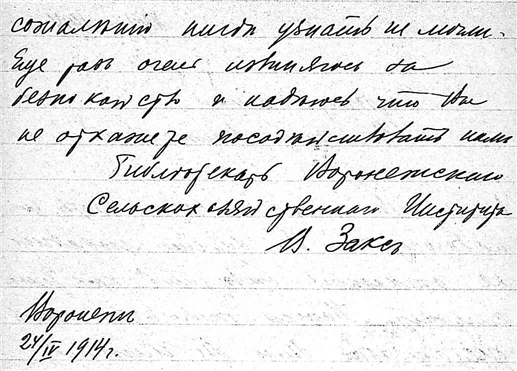 сожалѣнію нигдѣ узнать не могли.
Еще разъ очень извиняюсь за
безпокойство и надѣюсь что Вы
не откажете посодѣйствовать намъ
Библіотекарь Воронежскаго
Сельскохозяйственнаго Института
В. Заксъ
Воронежъ
24/IV 1914 г.